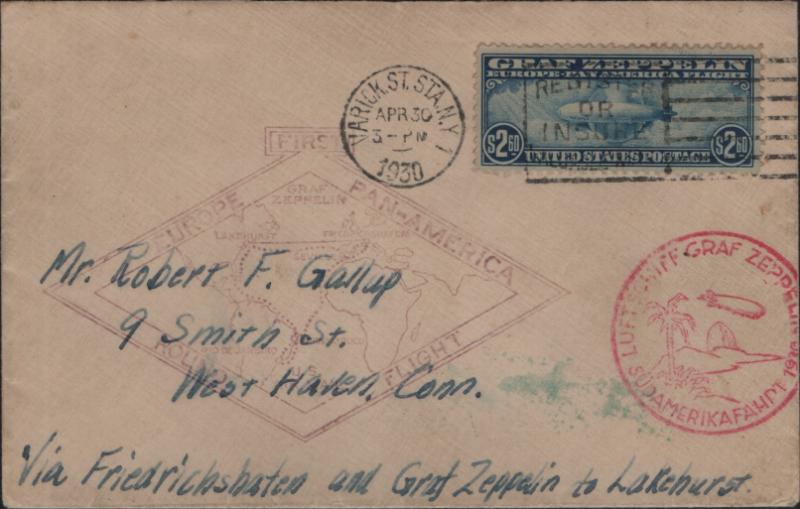 VARICK.ST.STA.N.Y. 1
APR 30
3-PM
1930
GRAF ZEPPELIN
EUROPE-PAN-AMERICA FLIGHT
REGISTER
OR
INSURE
$2.60 $2.60
UNITED STATES POSTAGE
FIRST
EUROPE PAN-AMERICA
GRAF
ZEPPELIN
LAKEHURST FRIEDRICHSHAFEN
RIO DE JANEIRO
FLIGHT
Mr. Robert F. Gallup
9 Smith St.
West Haven, Conn.
Via Friedrichshafen and Graf Zeppelin to Lakehurst.
LUFTSCHIFF GRAF ZEPPELIN
SÜDAMERIKAFAHRT 1930